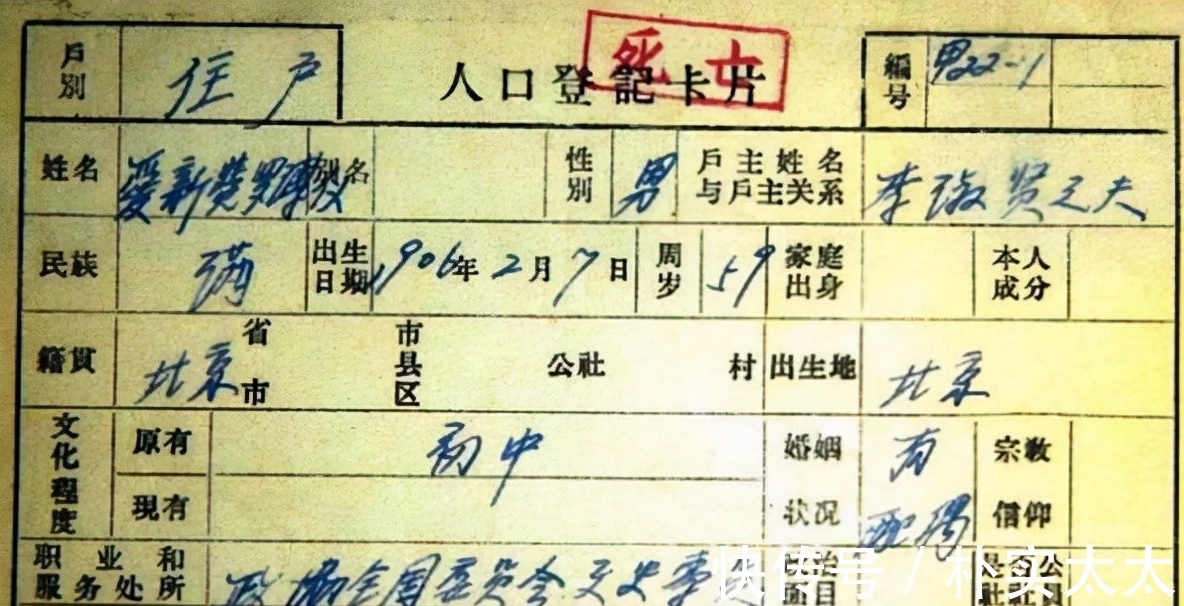 戶別 住户 人口登記卡片 死亡 編号 男22-1
姓名 爱新觉罗 别名 性別 男 戶主姓名与戶主关系 李淑贤之夫
民族 满 出生日期 1906年2月7日 周岁 59 家庭出身 本人成分
籍贯 北京 省市 市县区 公社 村 出生地 北京
文化程度 原有 初中 婚姻状况 有配偶 宗教信仰
現有
职业和服务处所 政协全国委员会文史专员
快传号 / 朴实太太